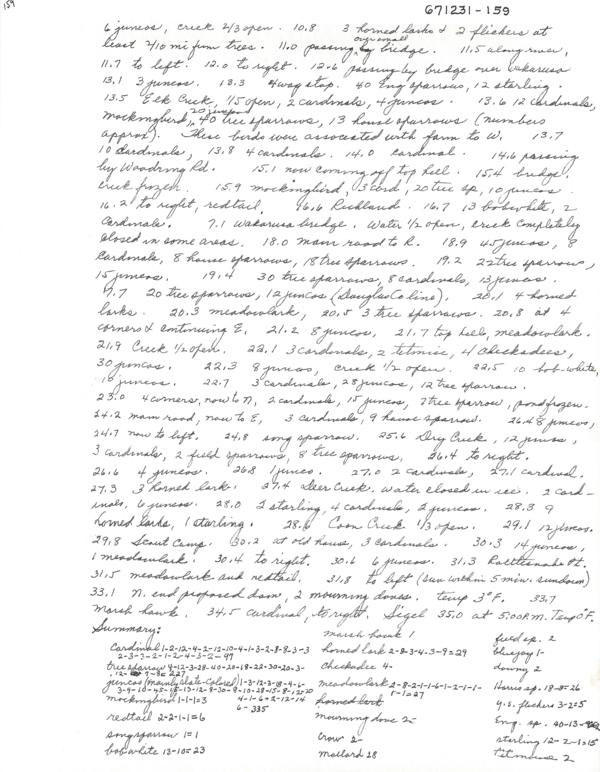 159
671231-159
6 juncos, creek 2/3 open. 10.8 3 horned larks & 2 flickers at
least 2/10 mi from trees. 11.0 passing over small bridge. 11.5 along river,
11.7 to left. 12.0 to right. 12.6 passing by bridge over Wakarusa
13.1 3 juncos. 13.3 4 way stop. 40 Eng sparrows, 12 starling.
13.5 Elk Creek, 1/5 open, 2 cardinals, 4 juncos. 13.6 12 cardinals,
mockingbird, 20 juncos 40 tree sparrows, 13 house sparrows (numbers
approx). These birds were associated with farm to W. 13.7
10 cardinals, 13.8 4 cardinals. 14.0 cardinal. 14.6 passing
by Woodring Rd. 15.1 now coming off top hill. 15.4 bridge,
creek frozen. 15.9 mockingbird, 3 card, 20 tree sp, 10 juncos.
16.2 to right, redtail. 16.6 Richland. 16.7 13 bobwhite, 2
cardinals. 7.1 Wakarusa bridge. Water 1/2 open, creek completely
closed in some areas. 18.0 main road to R. 18.9 45 juncos, 8
cardinals, 8 house sparrows, 18 tree sparrows. 19.2 22 tree sparrows,
15 juncos. 19.4 30 tree sparrows, 8 cardinals, 13 juncos.
9.7 20 tree sparrows, 12 juncos (Douglas Co line). 20.1 4 horned
larks. 20.3 meadowlark, 20.5 3 tree sparrows. 20.8 at 4
corners & continuing E. 21.2 8 juncos, 21.7 top hill, meadowlark.
21.9 Creek 1/2 open. 22.1 3 cardinals, 2 titmice, 4 chickadees,
30 juncos. 22.3 8 juncos, creek 1/2 open. 22.5 10 bob-white,
10 juncos. 22.7 3 cardinals, 28 juncos, 12 tree sparrow.
23.0 4 corners, now to N, 2 cardinals, 15 juncos, 7 tree sparrow, pond frozen.
24.2 main road, now to E, 3 cardinals, 9 house sparrow. 24.4 8 juncos,
24.7 now to left. 24.8 song sparrow. 25.6 Dry Creek, 12 juncos,
3 cardinals, 2 field sparrows, 8 tree sparrows. 26.4 to right.
26.6 4 juncos. 26.8 1 junco. 27.0 2 cardinals, 27.1 cardinal.
27.3 3 horned lark. 27.4 Deer Creek. water closed in ice. 2 card-
inals, 6 juncos. 28.0 2 starling, 4 cardinals, 2 juncos. 28.3 9
horned larks, 1 starling. 28.6 Coon Creek 1/3 open. 29.1 12 juncos.
29.8 Scout Camp. 30.2 at old house, 3 cardinals. 30.3 14 juncos,
1 meadowlark. 30.4 to right. 30.6 6 juncos. 31.3 Rattlesnake Pt.
31.5 meadowlark and redtail. 31.8 to left (sun within 5 min. sundown)
33.1 N. end proposed dam, 2 mourning doves. temp 3°F. 33.7
Marsh hawk. 34.5 cardinal, to right. Sigel 35.0 at 5:00 P.M. Temp 0°F.
Summary:
Cardinal 1-2-12-4-2-12-10-4-1-3-2-8-8-3-3
2-3-3-2-1-2-4-3-2-97
tree sparrow 4-12-3-28-40-20-18-22-30-20-3-
12- 7-8=227
juncos (mainly slate-colored) 1-3-12-3-18-4-6-
3-4-10-45-15-13-12-8-30-8-10-28-15-8-12-20
4-1-6-2-12-14
6-335
mockingbird 1-1-1=3
redtail 2-2-1-1=6
song sparrow 1=1
bobwhite 13-10=23
marsh hawk 1
horned lark 2-8-3-4-3-9=29
Chickadee 4-
meadowlark 2-8-2-1-1-6-1-2-1-1-
1-1=27
horned lark
mourning dove 2-
Crow 2-
mallard 28
field sp. 2
bluejay 1-
downy 2
Harris sp. 18-8=26
y.s. flickers 3-2=5
Eng. sp. 40-13-
starling 12-2-1=15
Titmouse 2